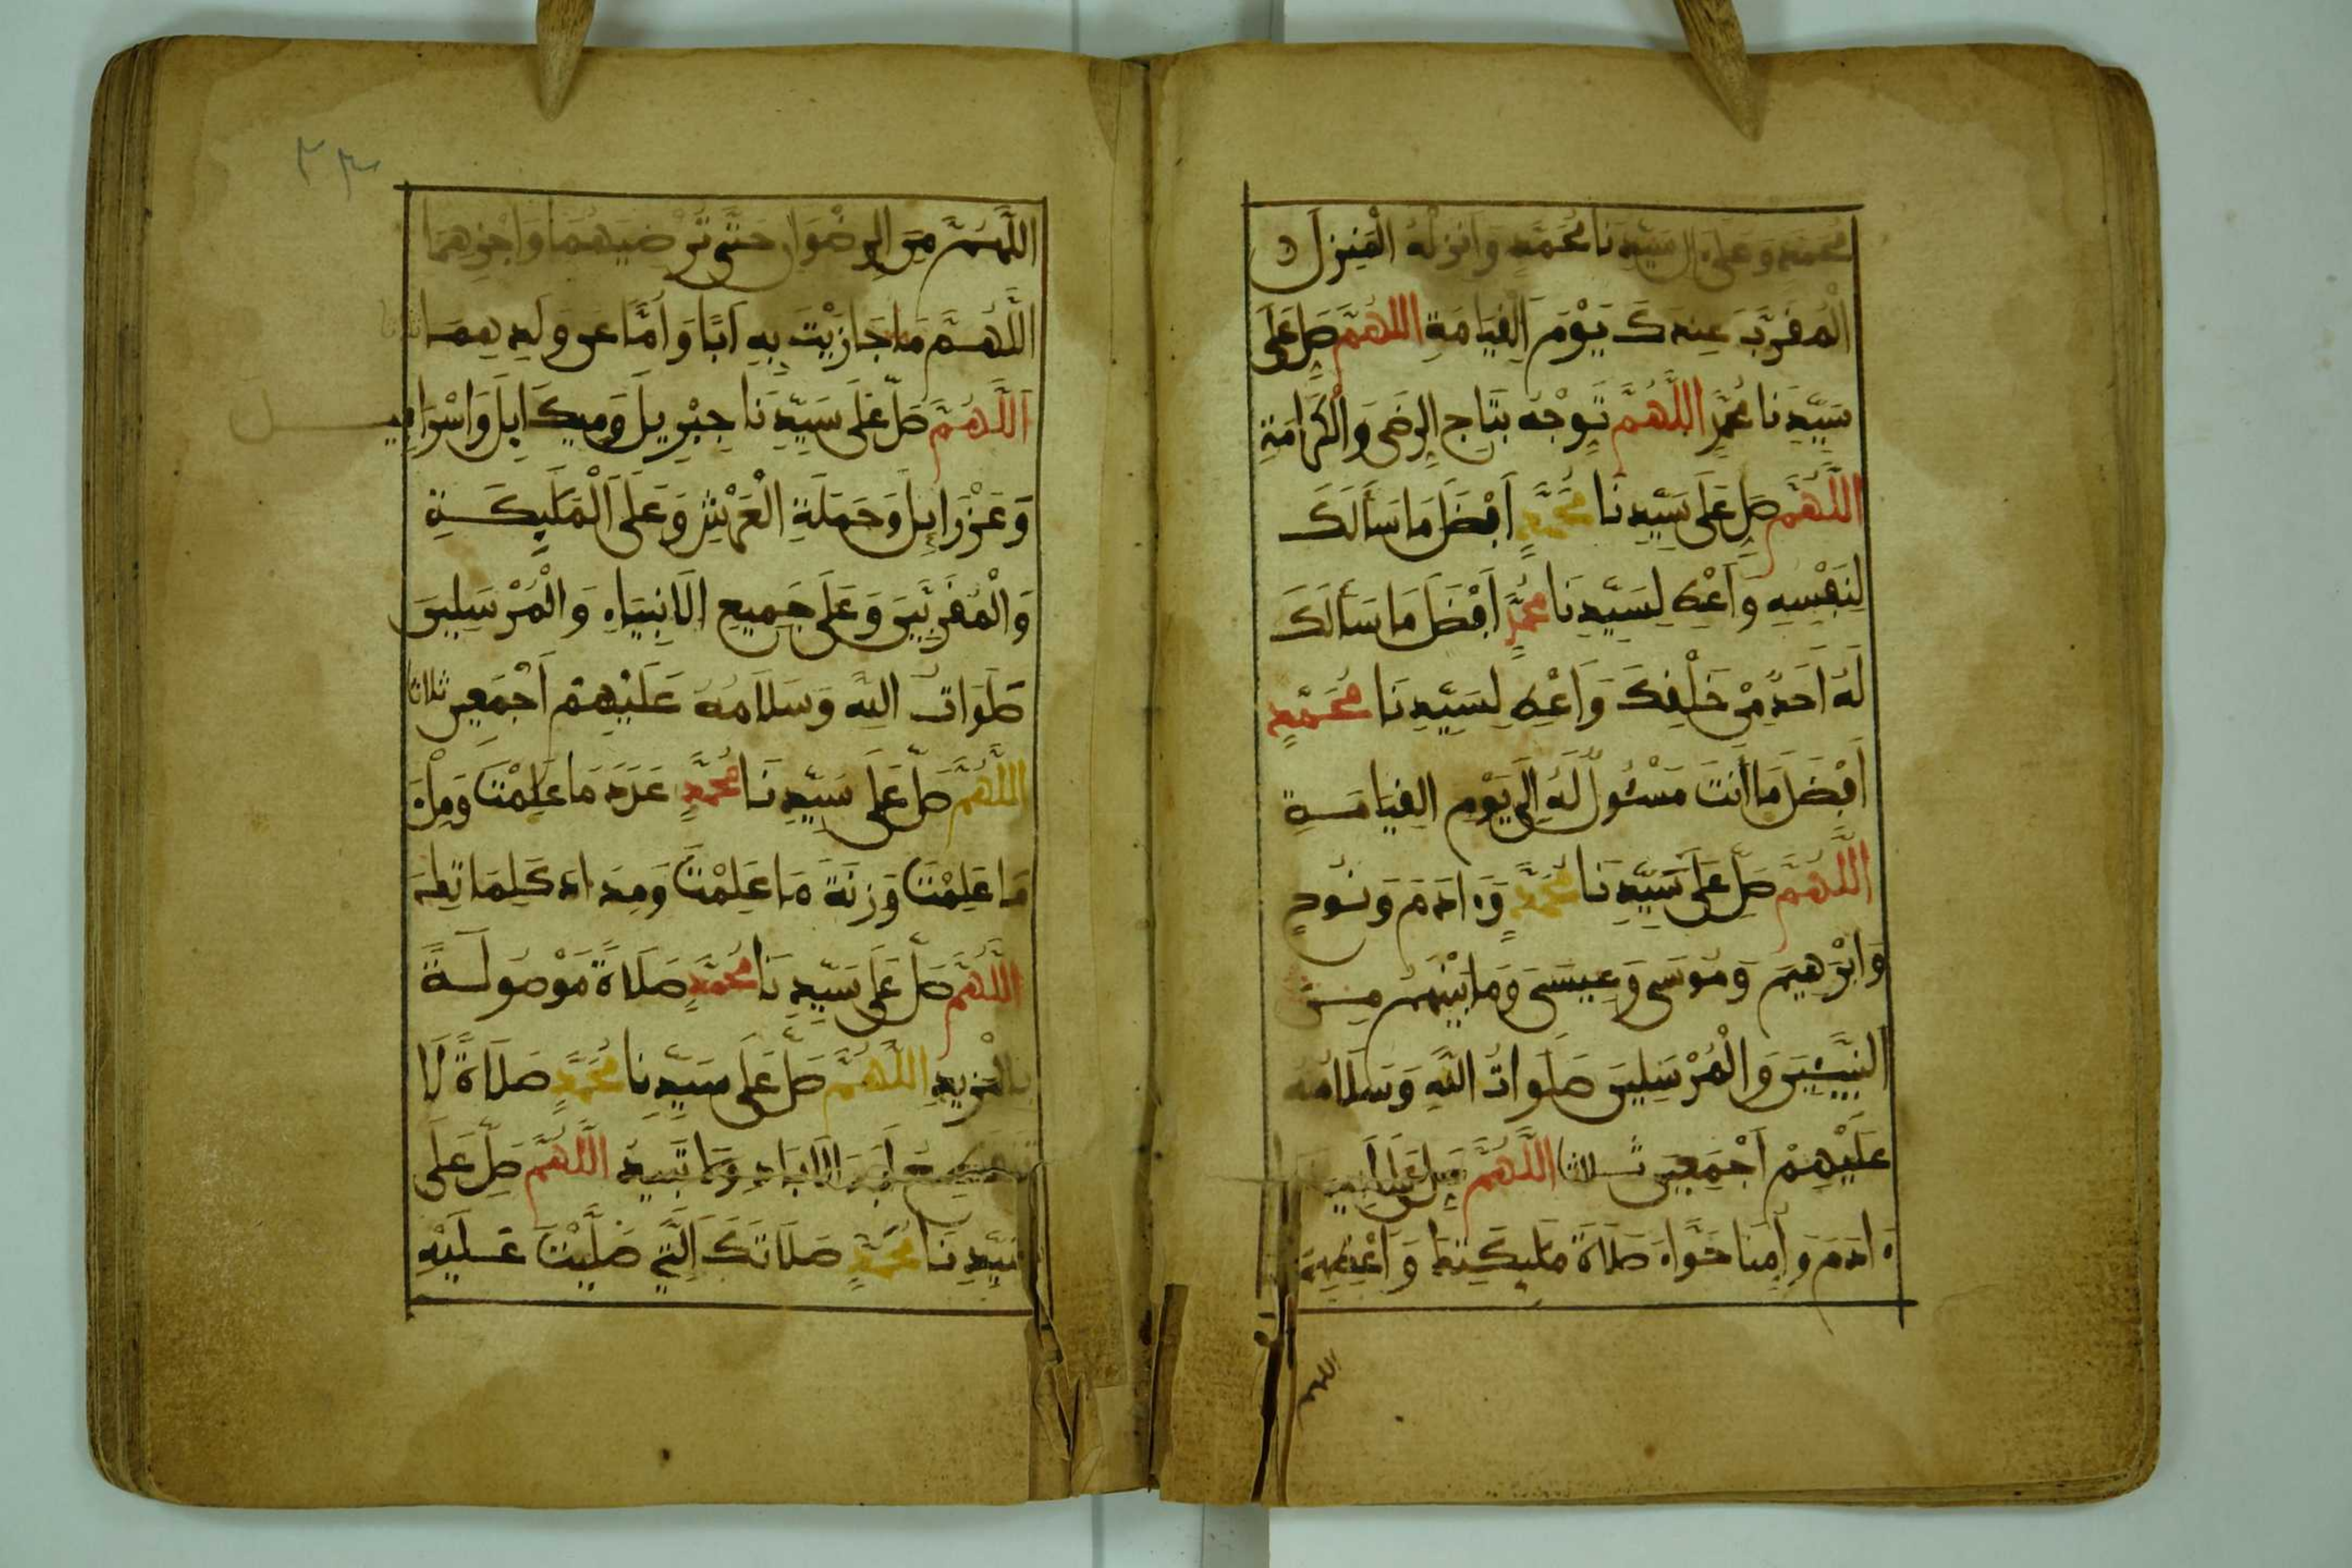 مُحَمَّدٍ وَعَلَى ءَالِ سَيِّدِنَا مُحَمَّدٍ وَأَنزِلْهُ الْمَنزِلَ
الْمُقَرَّبَ عِندَكَ يَوْمَ الْقِيَامَةِ اللَّهُمَّ صَلِّ عَلَى
سَيِّدِنَا مُحَمَّدٍ اللَّهُمَّ تَوِّجْهُ بِتَاجِ الرِّضَى وَالْكَرَامَةِ
اللَّهُمَّ صَلِّ عَلَى سَيِّدِنَا مُحَمَّدٍ أَفْضَلَ مَا سَأَلَكَ
لِنَفْسِهِ وَأَعْطِ لِسَيِّدِنَا مُحَمَّدٍ أَفْضَلَ مَا سَأَلَكَ
لَهُ أَحَدٌ مِّنْ خَلْقِكَ وَأَعْطِ لِسَيِّدِنَا مُحَمَّدٍ
أَفْضَلَ مَا أَنتَ مَسْئُولٌ لَّهُ إِلَى يَوْمِ الْقِيَامَةِ
اللَّهُمَّ صَلِّ عَلَى سَيِّدِنَا مُحَمَّدٍ وَءَادَمَ وَنُوحٍ
وَإِبْرَهِيمَ وَمُوسَى وَعِيسَى وَمَا بَيْنَهُمْ مِنَ
النَّبِيِّينَ وَالْمُرْسَلِينَ صَلَوَاتُ اللَّهِ وَسَلَامُهُ
عَلَيْهِمْ أَجْمَعِينَ ثلاثا اللَّهُمَّ صَلِّ عَلَى أَبِينَا
ءَادَمَ وَأُمِّنَا حَوَّاءَ صَلَاةَ مَلَئِكَتِكَ وَأَعْطِهِمَا
اللهم
٢٣
اللَّهُمَّ مِنَ الرِّضْوَانِ حَتَّى تُرْضِيَهُمَا وَاجْزِهِمَا
اللَّهُمَّ مَا جَازَيْتَ بِهِ أَبًا وَأُمًّا عَن وَلَدِهِمَا ثلاثا
اللَّهُمَّ صَلِّ عَلَى سَيِّدِنَا جِبْرِيلَ وَمِيكَائِلَ وَإِسْرَافِيلَ
وَعَزْرَائِلَ وَحَمَلَةِ الْعَرْشِ وَعَلَى الْمَلَئِكَةِ
وَالْمُقَرَّبِينَ وَعَلَى جَمِيعِ الْأَنبِيَاءِ وَالْمُرْسَلِينَ
صَلَوَاتُ اللَّهِ وَسَلَامُهُ عَلَيْهِمْ أَجْمَعِينَ ثلاثا
اللَّهُمَّ صَلِّ عَلَى سَيِّدِنَا مُحَمَّدٍ عَدَدَ مَا عَلِمْتَ وَمِلْءَ
مَا عَلِمْتَ وَزِنَةَ مَا عَلِمْتَ وَمِدَادَ كَلِمَاتِكَ
اللَّهُمَّ صَلِّ عَلَى سَيِّدِنَا مُحَمَّدٍ صَلَاةً مَوْصُولَةً
بِالْمَزِيدِ اللَّهُمَّ صَلِّ عَلَى سَيِّدِنَا مُحَمَّدٍ صَلَاةً لَا
تَنقَطِعُ أَبَدَ الْآبَادِ وَلَا تَبِيدُ اللَّهُمَّ صَلِّ عَلَى
سَيِّدِنَا مُحَمَّدٍ صَلَاتَكَ الَّتِي صَلَّيْتَ عَلَيْهِ